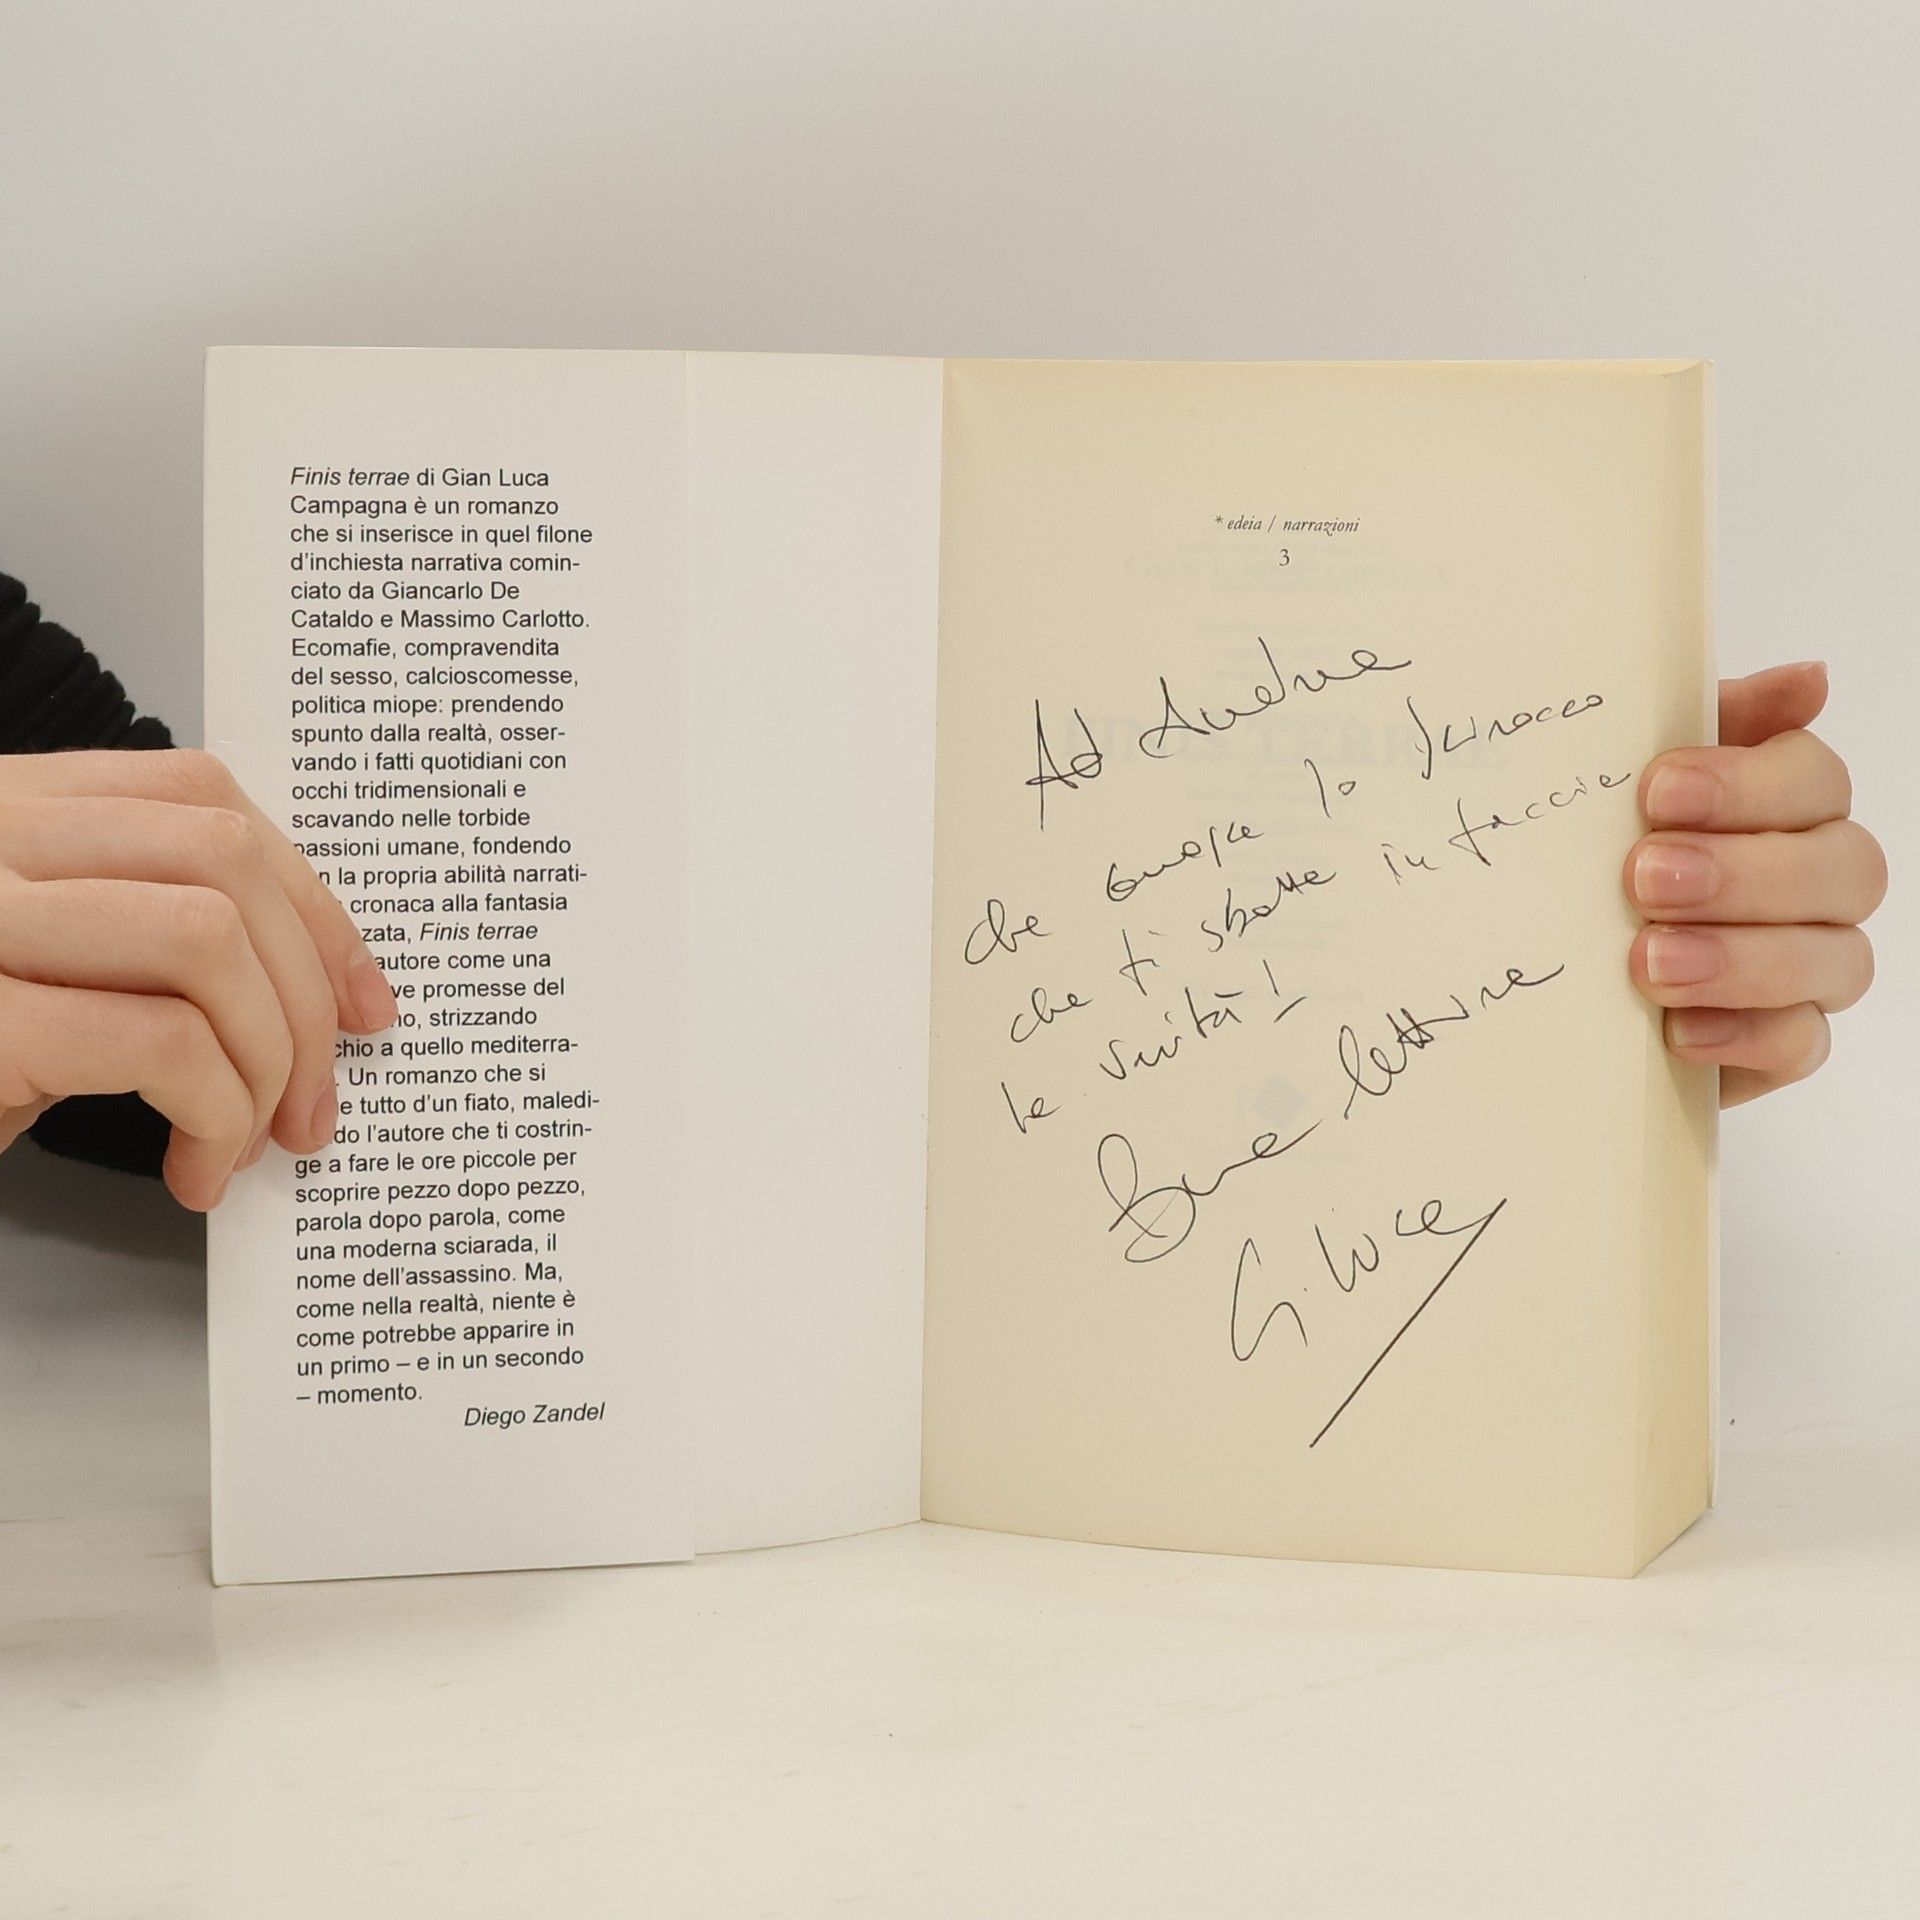 Finis terrae di Gian Luca
Campagna è un romanzo
che si inserisce in quel filone
d'inchiesta narrativa comin-
ciato da Giancarlo De
Cataldo e Massimo Carlotto.
Ecomafie, compravendita
del sesso, calcioscomesse,
politica miope: prendendo
spunto dalla realtà, osser-
vando i fatti quotidiani con
occhi tridimensionali e
scavando nelle torbide
passioni umane, fondendo
la propria abilità narrati-
cronaca alla fantasia
zata, Finis terrae
autore come una
ve promesse del
no, strizzando
chio a quello mediterra-
. Un romanzo che si
e tutto d'un fiato, maledi-
do l'autore che ti costrin-
ge a fare le ore piccole per
scoprire pezzo dopo pezzo,
parola dopo parola, come
una moderna sciarada, il
nome dell'assassino. Ma,
come nella realtà, niente è
come potrebbe apparire in
un primo – e in un secondo
– momento.
Diego Zandel
* edeia / narrazioni
3
Ad Andrea
che lo scirocco
che ti sbatte in faccia
la verità!
Buona lettura
G. Luca